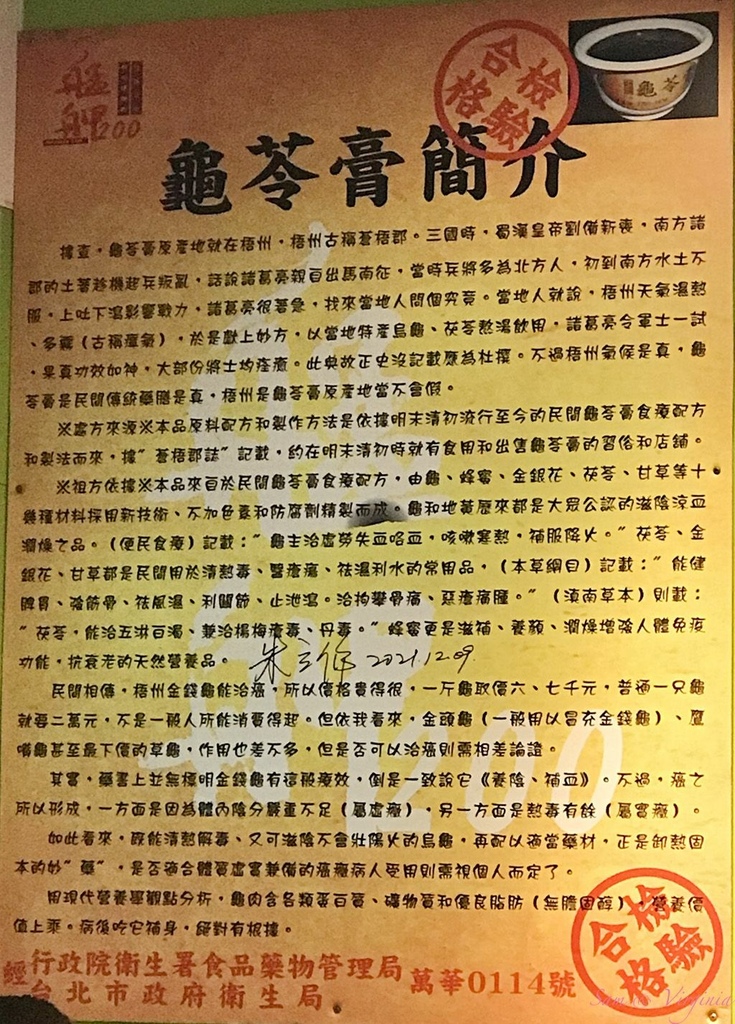 艋舺200
合格檢驗
龜苓
龜苓膏簡介
據查，龜苓膏原產地就在梧州，梧州古稱蒼梧郡。三國時，蜀漢皇帝劉備新喪，南方諸
郡的土著趁機起兵叛亂，話說諸葛亮親自出馬南征，當時兵將多為北方人，初到南方水土不
服，上吐下瀉影響戰力，諸葛亮很著急，找來當地人問個究竟。當地人就說，梧州天氣濕熱
、多霧（古稱瘴氣），於是獻上妙方，以當地特產烏龜、茯苓熬湯飲用，諸葛亮令軍士一試
，果真功效如神，大部份將士均痊癒。此典故正史沒記載應為杜撰。不過梧州氣候是真，龜
苓膏是民間傳統藥膳是真，梧州是龜苓膏原產地當不會假。
※處方來源※本品原料配方和製作方法是依據明末清初流行至今的民間龜苓膏食療配方
和製法而來，據"蒼梧郡誌"記載，約在明末清初時就有食用和出售龜苓膏的習俗和店舖。
※祖方依據※本品來自於民間龜苓膏食療配方，由龜、蜂蜜、金銀花、茯苓、甘草等十
幾種材料採用新技術、不加色素和防腐劑精製而成。龜和地黃歷來都是大眾公認的滋陰涼血
潤燥之品。（便民食療）記載："龜主治虛勞失血咯血，咳嗽寒熱，補服降火。"茯苓、金
銀花、甘草都是民間用於清熱毒、醫瘡瘍、祛濕利水的常用品，（本草綱目）記載："能健
脾胃、強筋骨、祛風濕、利關節、止泄瀉。治拘攣骨痛、惡瘡癰腫。"（滇南草本）則載：
"茯苓，能治五淋百濁、兼治楊梅瘡毒、丹毒。"蜂蜜更是滋補、養顏、潤燥增強人體免疫
功能，抗衰老的天然營養品。 2021.12.09.
民間相傳，梧州金錢龜能治癌，所以價格貴得很，一斤龜取價六、七千元，普通一只龜
就要二萬元，不是一般人所能消費得起。但依我看來，金頭龜（一般用以冒充金錢龜）、鷹
嘴龜甚至最下價的草龜，作用也差不多，但是否可以治癌則需相差論證。
其實，藥書上並無標明金錢龜有這般療效，倒是一致說它《養陰、補血》。不過，癌之
所以形成，一方面是因為體內陰分嚴重不足（屬虛癥），另一方面是熱毒有餘（屬實癥）。
如此看來，既能清熱解毒、又可滋陰不會壯陽火的烏龜，再配以適當藥材，正是卸熱固
本的妙"藥"，是否適合體質虛實兼備的癌癥病人受用則需視個人而定了。
用現代營養學觀點分析，龜肉含各類蛋白質、礦物質和優良脂肪（無膽固醇），營養價
值上乘。病後吃它補身，絕對有根據。
經行政院衛生署食品藥物管理局
台北市政府衛生局 萬華0114號
合格檢驗
Sam in Virginia